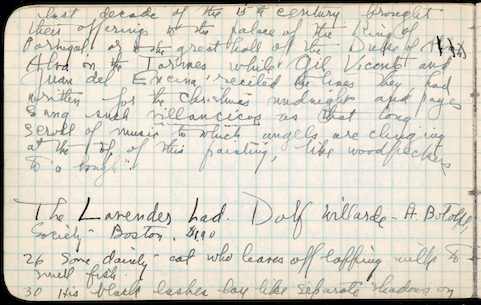 last decade of the 15th century brought
their offerings to the palace of the King of
Portugal or to the great hall of the Duke of
Alva on the Tormes while Gil Vicente and
Juan del Encina recited the lines they had
written for the christmas midnight and pages
sang such villancicos as that long
scroll of music to which angels are clinging
at the top of this painting, like woodpeckers
to a bough".
The Lavender Lad. Dolf Wyllarde - A. Botolph
Society - Boston. $1.90
26 Some dainty cat who leaves off lapping milk to
smell fish.
30 His black lashes lay like separate shadows on